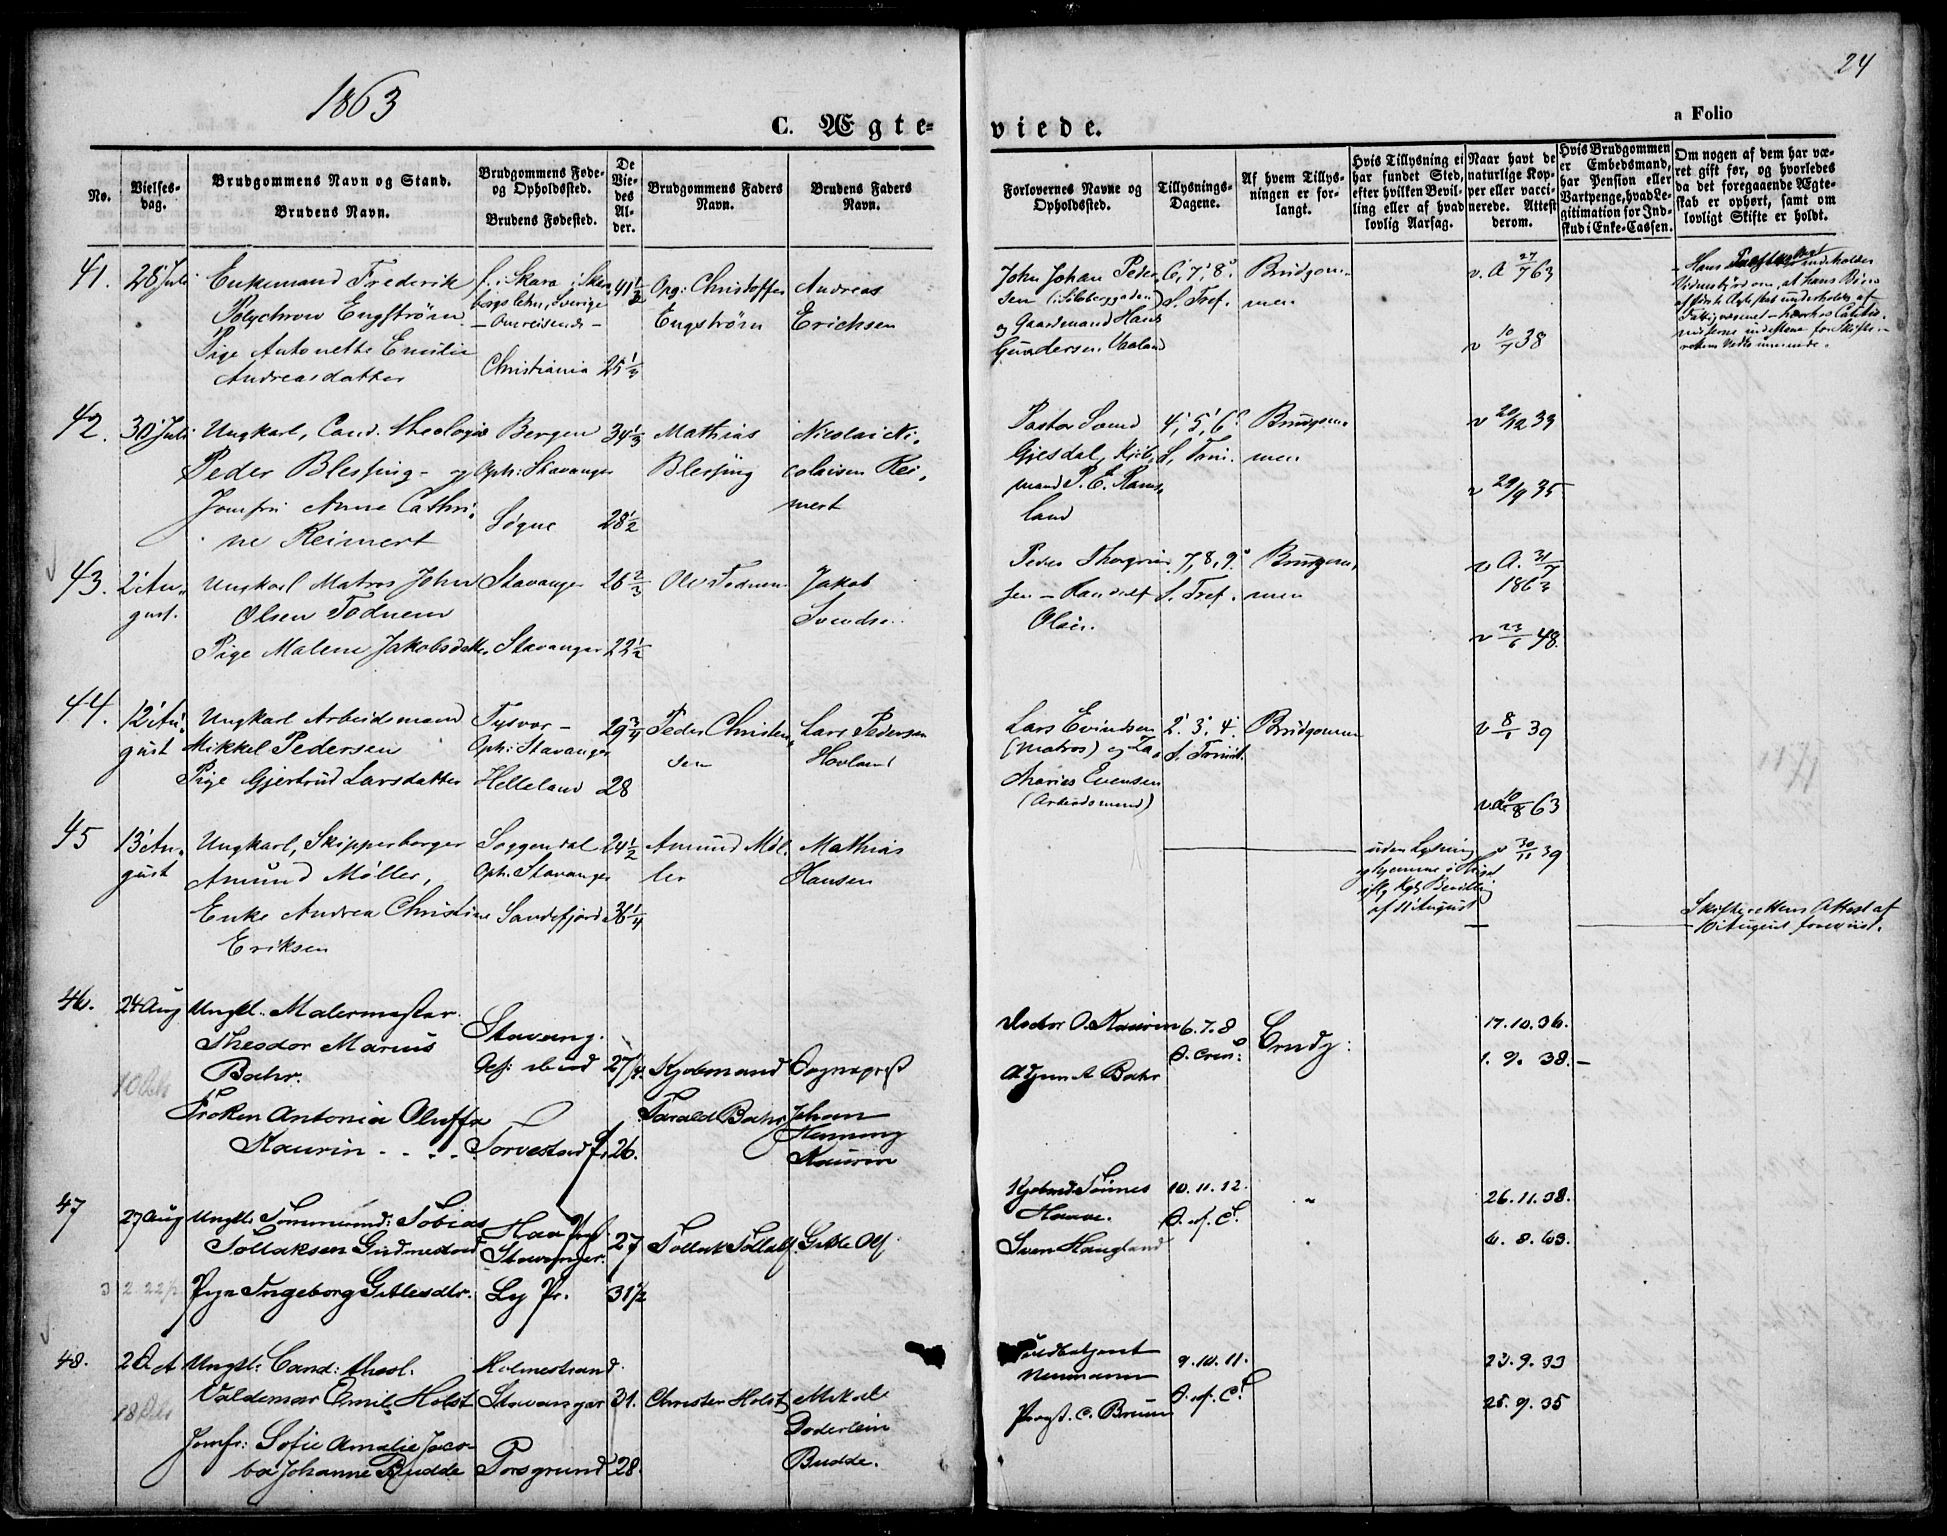 1863
24
C. Ægte-
viede.
a Folio
No.
Vielses-
dag.
Brudgommens Navn og Stand.
Brudens Navn.
Brudgommens Føde-
og Opholdssted.
Brudens Fødested.
De
Vie-
des
Al-
der.
Brudgommens Faders
Navn.
Brudens Faders
Navn.
Forlovernes Navne og
Opholdssted.
Tillysnings-
Dagene.
Af hvem Tillys-
ningen er for-
langt.
Hvis Tillysning ei
har fundet Sted,
efter hvilken Bevil-
ling eller af hvad
lovlig Aarsag.
Naar havt de
naturlige Kop-
per eller vacci-
nerede. Attest
derom.
Hvis Brudgommen
er Embedsmand,
har Pension eller
Vartpenge, hvad Le-
gitimation for Ind-
skud i Enke-Cassen.
Om nogen af dem har væ-
ret gift før, og hvorledes
da det foregaaende Ægte-
skab er ophørt, samt om
lovligt Skifte er holdt.
41. 28 Juli
Enkemand Frederik
Polychron Engström
Pige Antonette Emilie
Andreasdatter
f. i Skara i Skara
borgs lehn, Sverige
- Omreisende -
Christiania
41 1/2
25 1/3
Opg: Christoffer
Engström
Andreas
Erichsen
John Johan Peder
sen (i Pilsberggaden)
og Gaardmand Hans
Gundersen Vaaland
6, 7, 8 S. Tref.
Brudgom-
men
v. A 27/7 63
v 10/7 38
42. 30 Juli
Ungkarl, Cand. theologiæ
Peder Blessing - og
Jomfru Anne Cathri-
ne Reimert
Bergen
Oph: Stavanger
Søgne
34 1/3
28 1/2
Mathias
Blessing
Nicolai Ni-
colaisen Rei-
mert
Pastor Svend
Gjesdal, Kjøb-
mand P. E. Rams-
land
4, 5, 6 S. Trni.
Brudgom-
men
v 20/12 33
v 29/9 35
43. 2 Au-
gust.
Ungkarl Matros John
Olsen Todnem
Pige Malene Jakobsdatt.
Stavanger
Stavanger
26 2/3
22 1/2
Ole Todnem
Jakob
Svendsen
Peder Thorgrim-
sen - Randulf
Olsen.
7, 8, 9 S. Tref.
Brudgom-
men
v A. 31/7
1863
v 23/6 48
44. 12 Au-
gust
Ungkarl Arbeidsmand
Mikkel Pedersen
Pige Gjertrud Larsdatter
Tysvær -
Oph: Stavanger
Helleland
29 3/4
28
Peder Christen-
sen
Lars Pedersen
Hovland
Lars Evindsen
(Matros) og Za-
charias Evensen
(Arbeidsmand)
2. 3. 4.
S. Trinit.
Brudgommen
v 8/1 39
v A 10/8 63
45 13 Au-
gust
Ungkarl, Skipperborger
Amund Møller,
Enke Andrea Christine
Eriksen
Soggendal
Oph. Stavanger
Sandefjord
24 1/2
36 1/4
Amund Møl-
ler
Mathias
Hansen
uden Lysning
og hjemme i Huset
iflg Kgl. Bevilling
af 11 August
v 30/11 39
Skifterettens Attest af
August forevist.
46. 24 Aug
Ungkl. Malermester
Theodor Marius
Bahr.
Frøken Antonia Oluffa
Kaurin
Stavang.
Torvestad
27 1/4
26.
Kjøbmand
Tarald Bahr
Sognepræst
Johan
Henning
Kaurin
Doctor O. Kaurin
A. Bahr
6. 7. 8
Brudg:
17. 10. 36.
1. 9. 38. -
47 27 Aug
Ungkl. Tømmermd: Tobias
Tollaksen Gudmestad
Pige Ingeborg Gitlesdtr.
Haa Pr.
Stavanger.
Ly Pr.
27
31 1/2
Tollak Tollaks.
Gitle Ols.
Kjøbmd Tønnes
Haave.
Sven Haugland
10. 11. 12.
"
26. 11. 38.
6. 8. 63.
48. 2 Oct
Ungkl: Cand: theol.
Valdemar Emil Holst
Jomfr: Sofie Amalie Jaco-
bia Johanne Budde
Holmestrand
Stavanger
Porsgrund
31.
28.
Christen Holst
Mikal
Doderlein
Budde.
Neumann
Provst. C. Bruun
9. 10. 11.
23. 9. 33
25. 9. 35